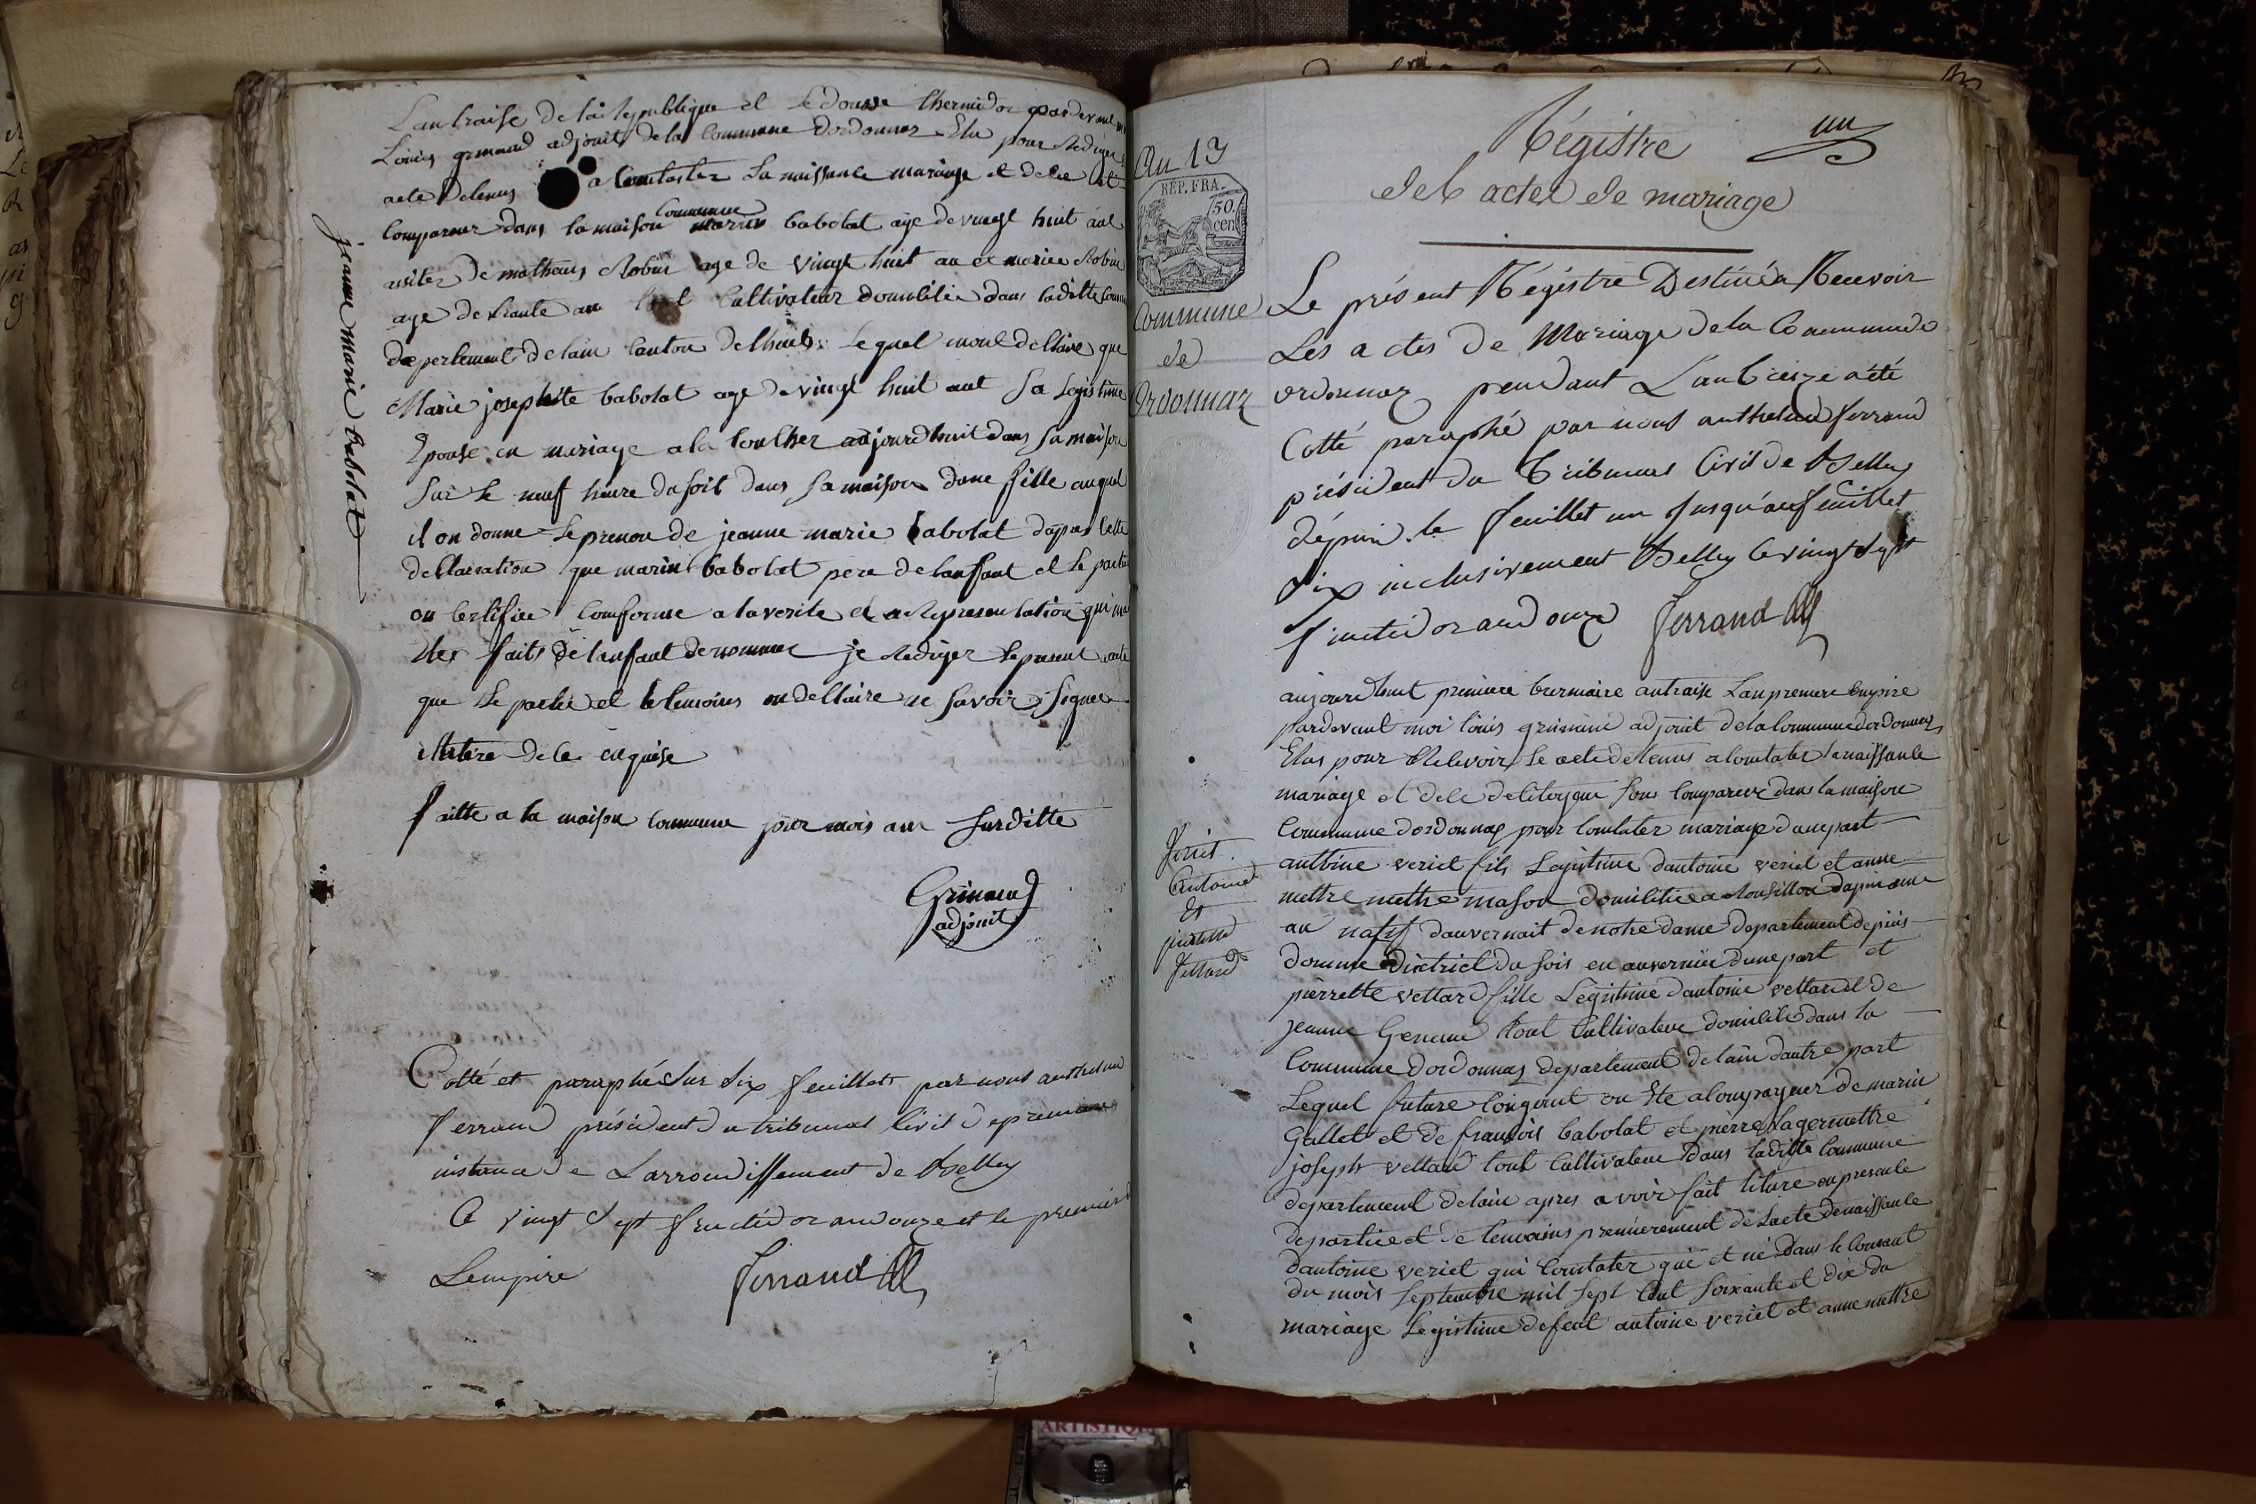 Lan traise de la republique et le dousse thermidor pardevant
Louis grimand adjoint de la commune dordonnaz Elu pour Rediger
acte detenus a Constaster la naissance mariage et dece
compareur dans la maison commune marin babolat age de vingt huit ant
de matheus Robin age de vingt huit an et marie Robin
age de trante an cultivateur domilie dans laditte
departement de lain canton de lhuis lequel mont dellaire que
Marie josephte babolat age de vingt huit ant sa legistime
Epouse en mariage a la coucher aujourdhuit dans sa maison
sur le neuf heure du soit dans sa maison dune fille auquel
il on donne le prenon de jeanne marie babolat dapres cette
dellaration que marin babolat pere de lanfant et le
on certifiee comforme a la verite et a Representation qui
faits de lanfant denommer je Rediger le present acte
que le partie et le temoins on dellaire ne savoir signee
de ce enquise
faitte a la maison commune jour mois an surditte
Grimand
adjoint
jeanne marie babolat
Cotté et paraphé sur six feuillets par nous anthelme
ferrand président du tribunal civil de premiere
instance de Larrondissement de Belley
Ce vingt sept fructidor an douze et le premier
Lempire
ferrand
un
Régistre
des actes de mariage
An 13
REP. FRA.
50.
cen
Commune
de
Ordonnaz
Le présent Régistre Destiné a Recevoir
Les actes de Mariage de la Commune de
ordonnaz pendant L'an treize a été
Cotté paraphé par nous anthelme ferrand
président du Tribunal Civil de Belley
dépuis le feuillet un Jusqu'au feuillet
six inclusivement Belley le vingt sept
fructidor an douze ferrand
aujourdhuit premiere brumaire an traise Lan premiere Empire
pardevant moi louis grimand adjoint de la commune dordonnaz
Elus pour Relevoir le acte detenus a constater la naissance
mariage et dece de litoyen sons comparere dans la maison
commune dordonnaz pour constater mariage dune part
anthoine veriet fils Legistime dantoine veriet et anne
mettre mettre mason domilitie a Rousillon dapuis une
an natif dauvernait de notre dame departement depuis
domme district du fois en auvernie dune part et
pierrette vettard fille Legistime dantoine vettard et de
jeanne Genaine tout Cultivateur domilité dans la
Commune dordonnaz departement de lain dautre part
Lequel future Congoint on Ete acompagner de marin
Gallet et de francois babolat et pierre Lagermettre
joseph vettard tout Cultivateur dans laditte Commune
departement de lain apres avoir fait liture en presence
departie et de temoins premierement de lacte de naissance
dantoine veriet qui Constater que et né dans le Courant
du mois septembre mil sept Cent soixante et dix du
mariage Legistime defeut antoine veriet et anne mettre
Antoine
Et